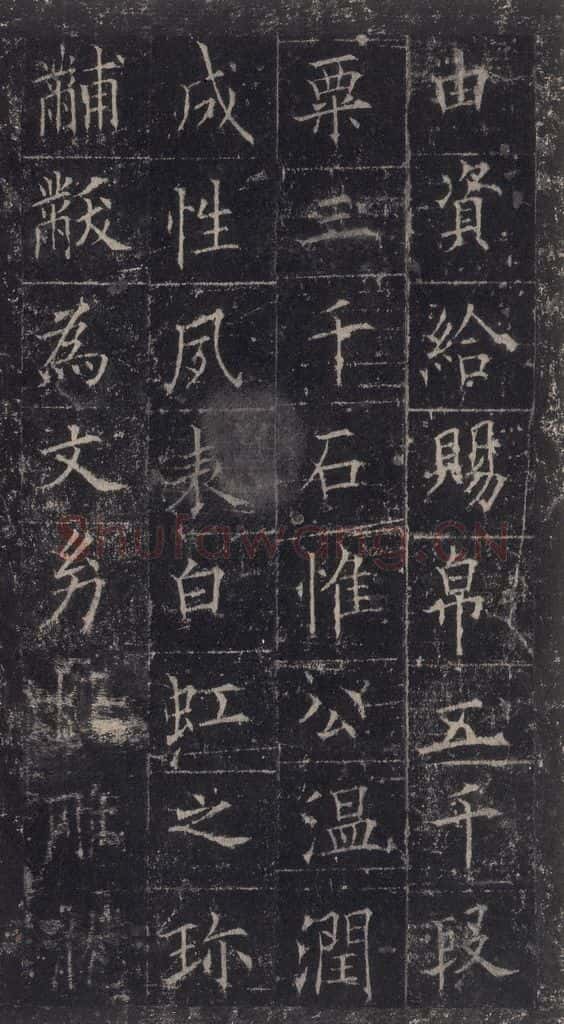 由資給賜帛五千段
粟三千石惟公温潤
成性夙表白虹之珍
黼黻為文幼雕